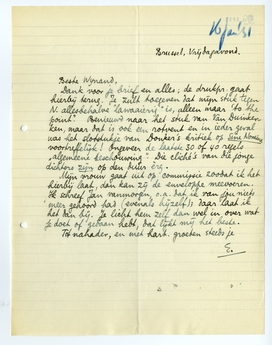 16 jan '31
Brussel, Vrijdagavond.
Beste Wijnand,
Dank voor je brief en alles; de drukpr. gaat
hierbij terug. Je zult toegeven dat mijn stuk tegen
N. allesbehalve "lawaaierig" is, alleen maar "to the
point". Benieuwd naar het stuk van Van Duinker-
ken, maar dat is ook een rotvent en in ieder geval
was het slotstukje van Donker's kritiek op
voortreffelijk! Ongeveer de laatste 30 of 40 regels
"algemeene beschouwing". Die cliché's van die jonge
dichters zijn ook
Mijn vrouw gaat uit op commissie zoodat ik het
hierbij laat, dan kan zij de enveloppe meenemen.
Ik schreef Jan vanmorgen o.a. dat ik van jou niets
meer gehoord had (evenals hijzelf); daar laat ik
het dan bij. Je licht hem zelf dan wel in over wat
je doet of gedaan hebt, dat lijkt mij het beste.
Tot nader, en met hart. groeten steeds je
E.